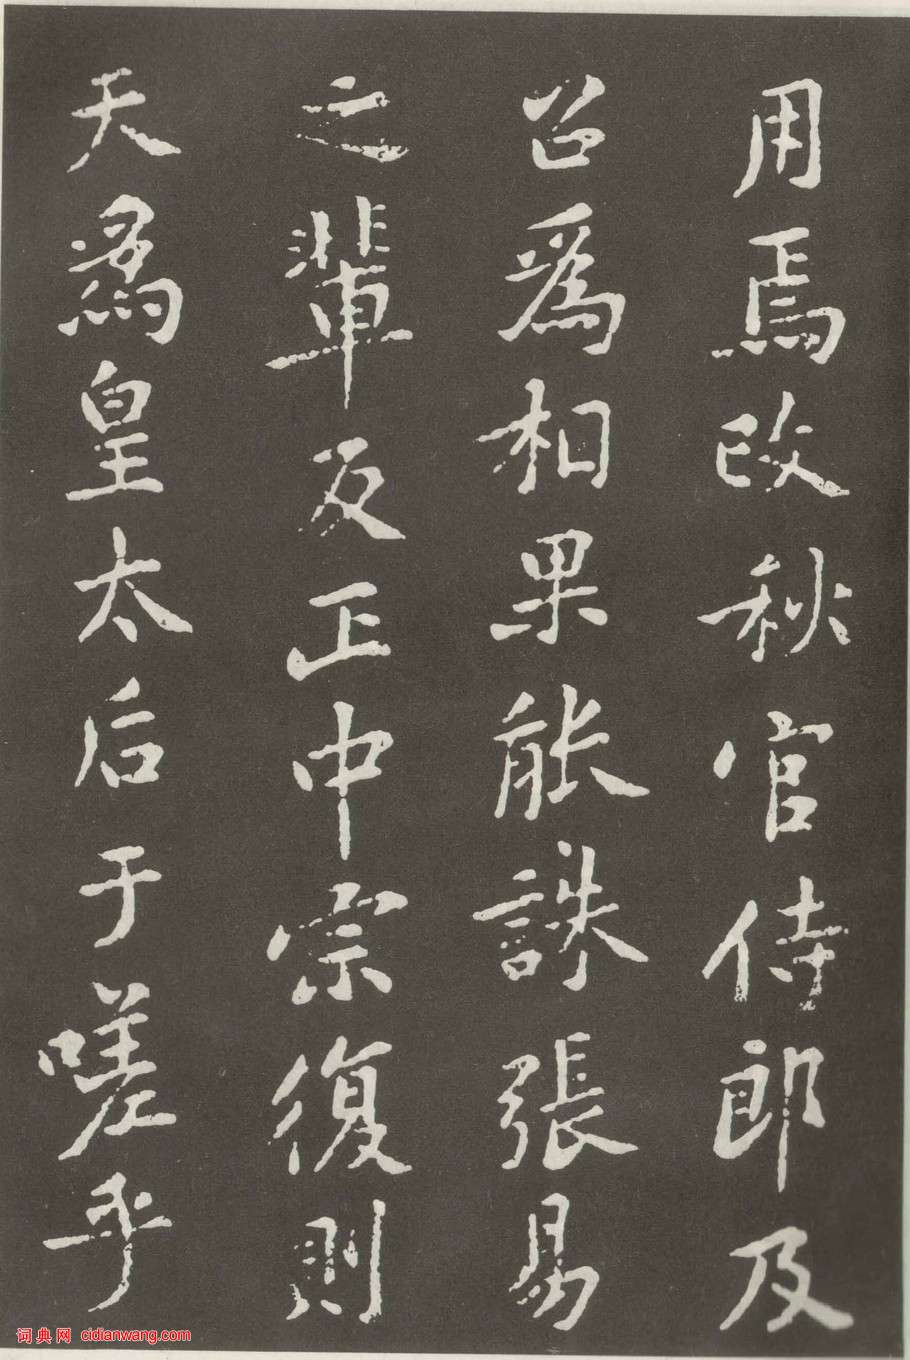 用焉改秋官侍郎及
召爲相果能誅張易
之輩反正中宗復則
天為皇太后于嗟乎
词典网 cidianwang.com